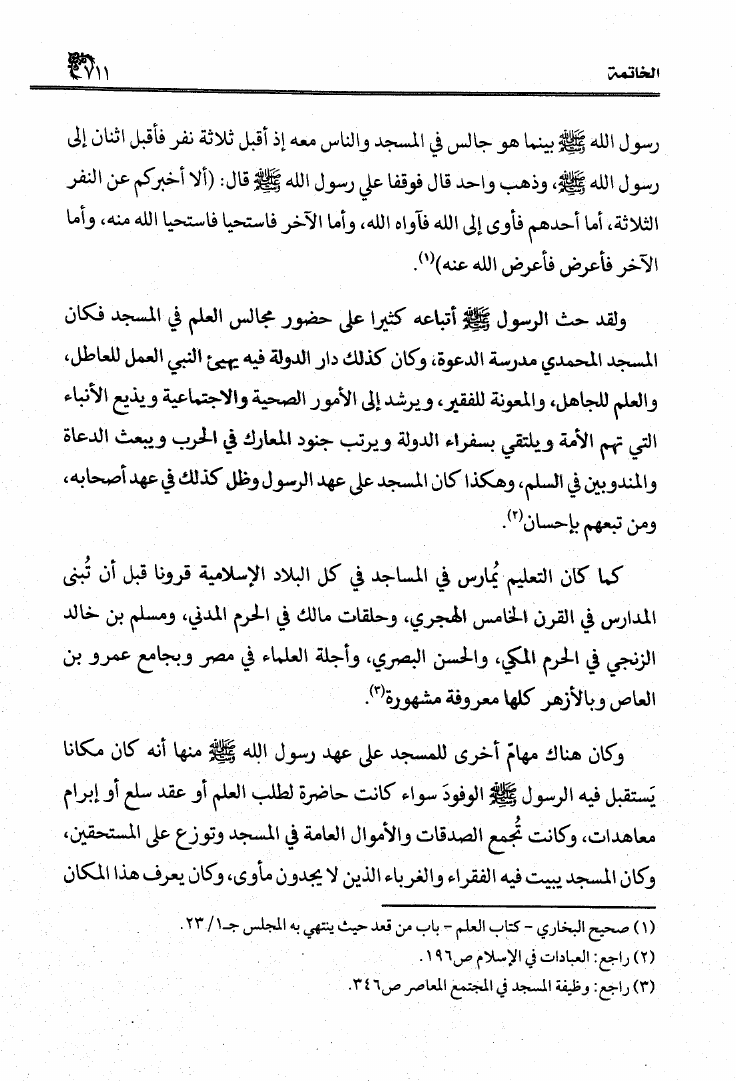 الخاتمة
٧١١
رسول الله ﷺ بينما هو جالس في المسجد والناس معه إذ أقبل ثلاثة نفر فأقبل اثنان إلى
رسول الله ﷺ، وذهب واحد قال فوقفا علي رسول الله ﷺ قال: (ألا أخبركم عن النفر
الثلاثة، أما أحدهم فأوى إلى الله فآواه الله، وأما الآخر فاستحيا فاستحيا الله منه، وأما
الآخر فأعرض فأعرض الله عنه)(١).
ولقد حث الرسول ﷺ أتباعه كثيرا على حضور مجالس العلم في المسجد فكان
المسجد المحمدي مدرسة الدعوة، وكان كذلك دار الدولة فيه يهيئ النبي العمل للعاطل،
والعلم للجاهل، والمعونة للفقير، ويرشد إلى الأمور الصحية والاجتماعية ويذيع الأنباء
التي تهم الأمة ويلتقي بسفراء الدولة ويرتب جنود المعارك في الحرب ويبعث الدعاة
والمندوبين في السلم، وهكذا كان المسجد على عهد الرسول وظل كذلك في عهد أصحابه،
ومن تبعهم بإحسان(٢).
كما كان التعليم يُمارس في المساجد في كل البلاد الإسلامية قرونا قبل أن تُبنى
المدارس في القرن الخامس الهجري، وحلقات مالك في الحرم المدني، ومسلم بن خالد
الزنجي في الحرم المكي، والحسن البصري، وأجلة العلماء في مصر وبجامع عمرو بن
العاص وبالأزهر كلها معروفة مشهورة(٣).
وكان هناك مهامّ أخرى للمسجد على عهد رسول الله ﷺ منها أنه كان مكانا
يَستقبل فيه الرسول ﷺ الوفودَ سواء كانت حاضرة لطلب العلم أو عقد سلع أو إبرام
معاهدات، وكانت تُجمع الصدقات والأموال العامة في المسجد وتوزع على المستحقين،
وكان المسجد يبيت فيه الفقراء والغرباء الذين لا يجدون مأوى، وكان يعرف هذا المكان
(١) صحيح البخاري - كتاب العلم - باب من قعد حيث ينتهي به المجلس جـ١/ ٢٣.
(٢) راجع: العبادات في الإسلام ص١٩٦.
(٣) راجع: وظيفة المسجد في المجتمع المعاصر ص٣٤٦.